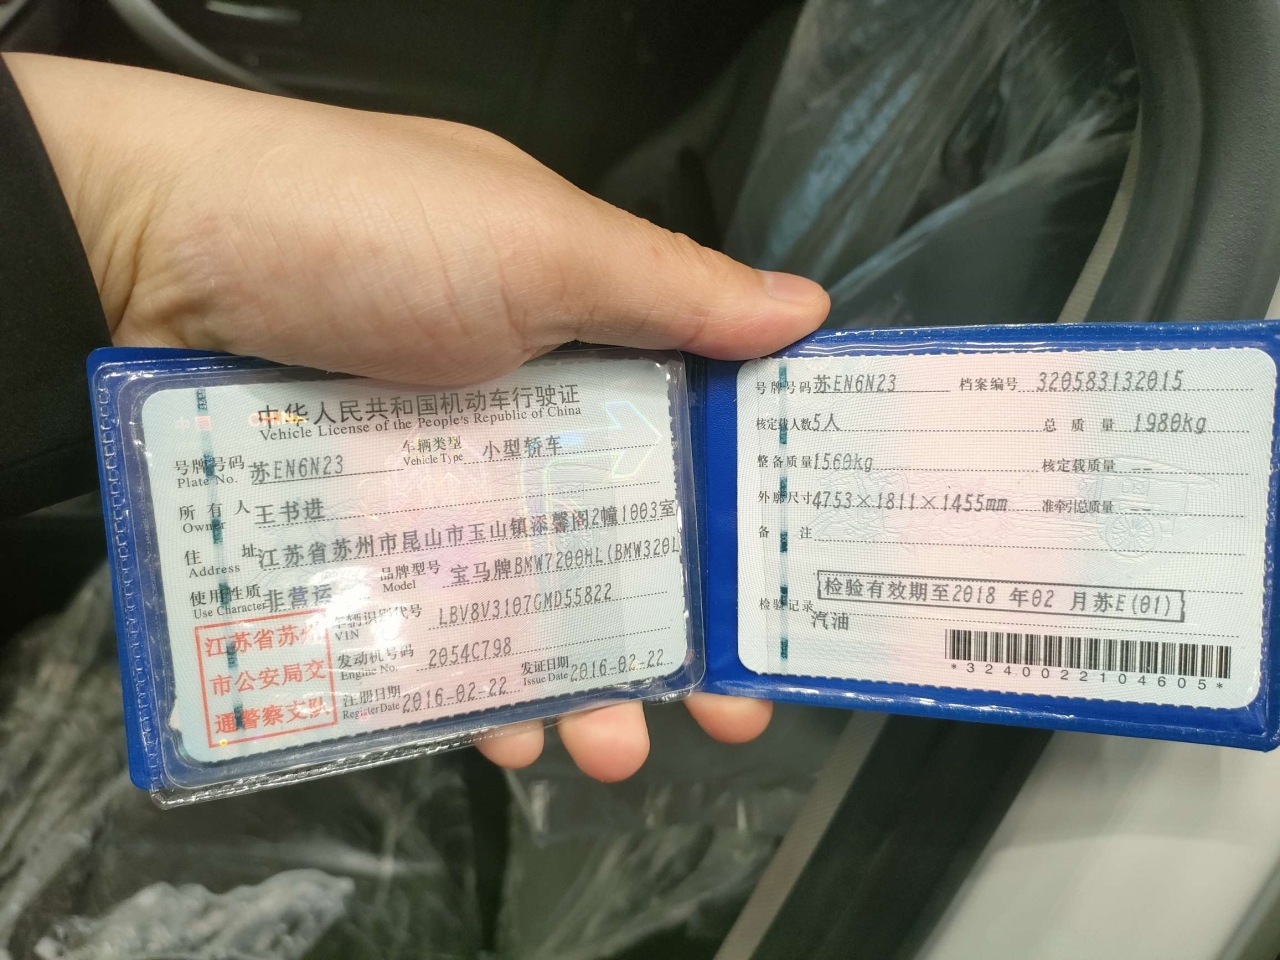 中华人民共和国机动车行驶证
Vehicle License of the People's Republic of China
号牌号码 苏EN6N23 车辆类型 小型轿车
Plate No. Vehicle Type
所有人 王书进
Owner
住址 江苏省苏州市昆山市玉山镇漆馨阁2幢1003室
Address
使用性质 非营运 品牌型号 宝马牌BMW7200HL(BMW320L
Use Character Model
车辆识别代号 LBV8V3107GMD55822
VIN
发动机号码 2054C798
Engine No.
注册日期 2016-02-22 发证日期 2016-02-22
Register Date Issue Date
江苏省苏州
市公安局交
通警察支队
号牌号码 苏EN6N23 档案编号 320583132015
核定载人数 5人 总质量 1980kg
整备质量 1560kg 核定载质量 --
外廓尺寸 4753×1811×1455mm 准牵引总质量 --
备注
检验记录 检验有效期至2018 年02 月苏E(01)
汽油
*3240022104605*